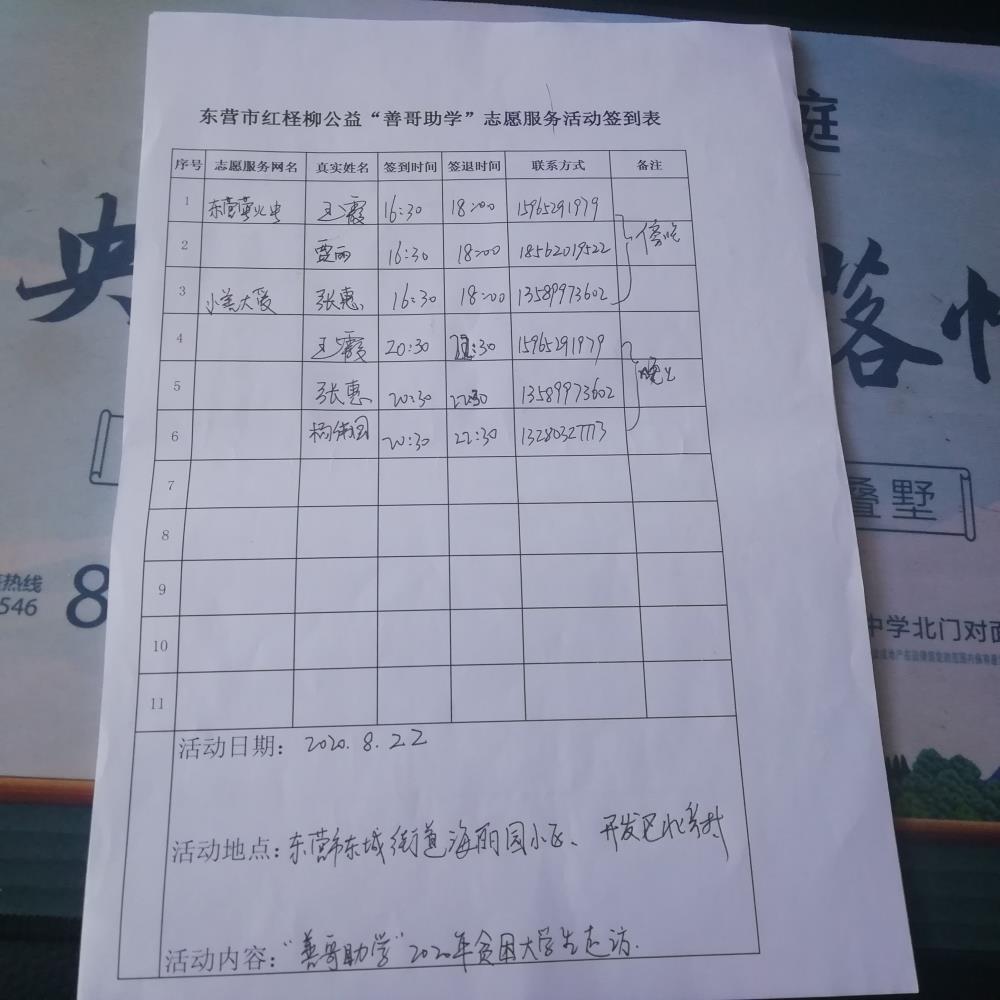 东营市红柽柳公益“善哥助学”志愿服务活动签到表
序号 志愿服务网名 真实姓名 签到时间 签退时间 联系方式 备注
1 东营萤火虫 王霞 16:30 18:00 15965291979
2 贾丽 16:30 18:00 18562019522 傍晚
3 小善大爱 张惠 16:30 18:00 13589973602
4 王霞 20:30 22:30 15965291979
5 张惠 20:30 22:30 13589973602 晚上
6 20:30 22:30 13280327773
7
8
9
10
11
活动日期: 2020.8.22
活动地点: 东营市东城街道海丽园小区、开发区
活动内容: “善哥助学”2020年贫困大学生走访.
庭
央
喀
叠墅
热线
546 8
中学北门对面